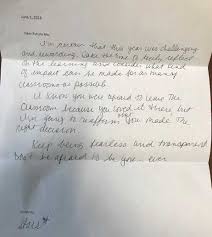 June 5, 2018
I'm positive that this year was challenging
and rewarding. Take the time to really reflect
on the learning and consider what kind
of impact can be made for as many
classrooms as possible.
I know you were afraid to leave the
classroom because you loved it there, but
I'm going to reaffirm you made the
right decision
Keep being fearless and transparent
Don't be afraid to be you ... ever